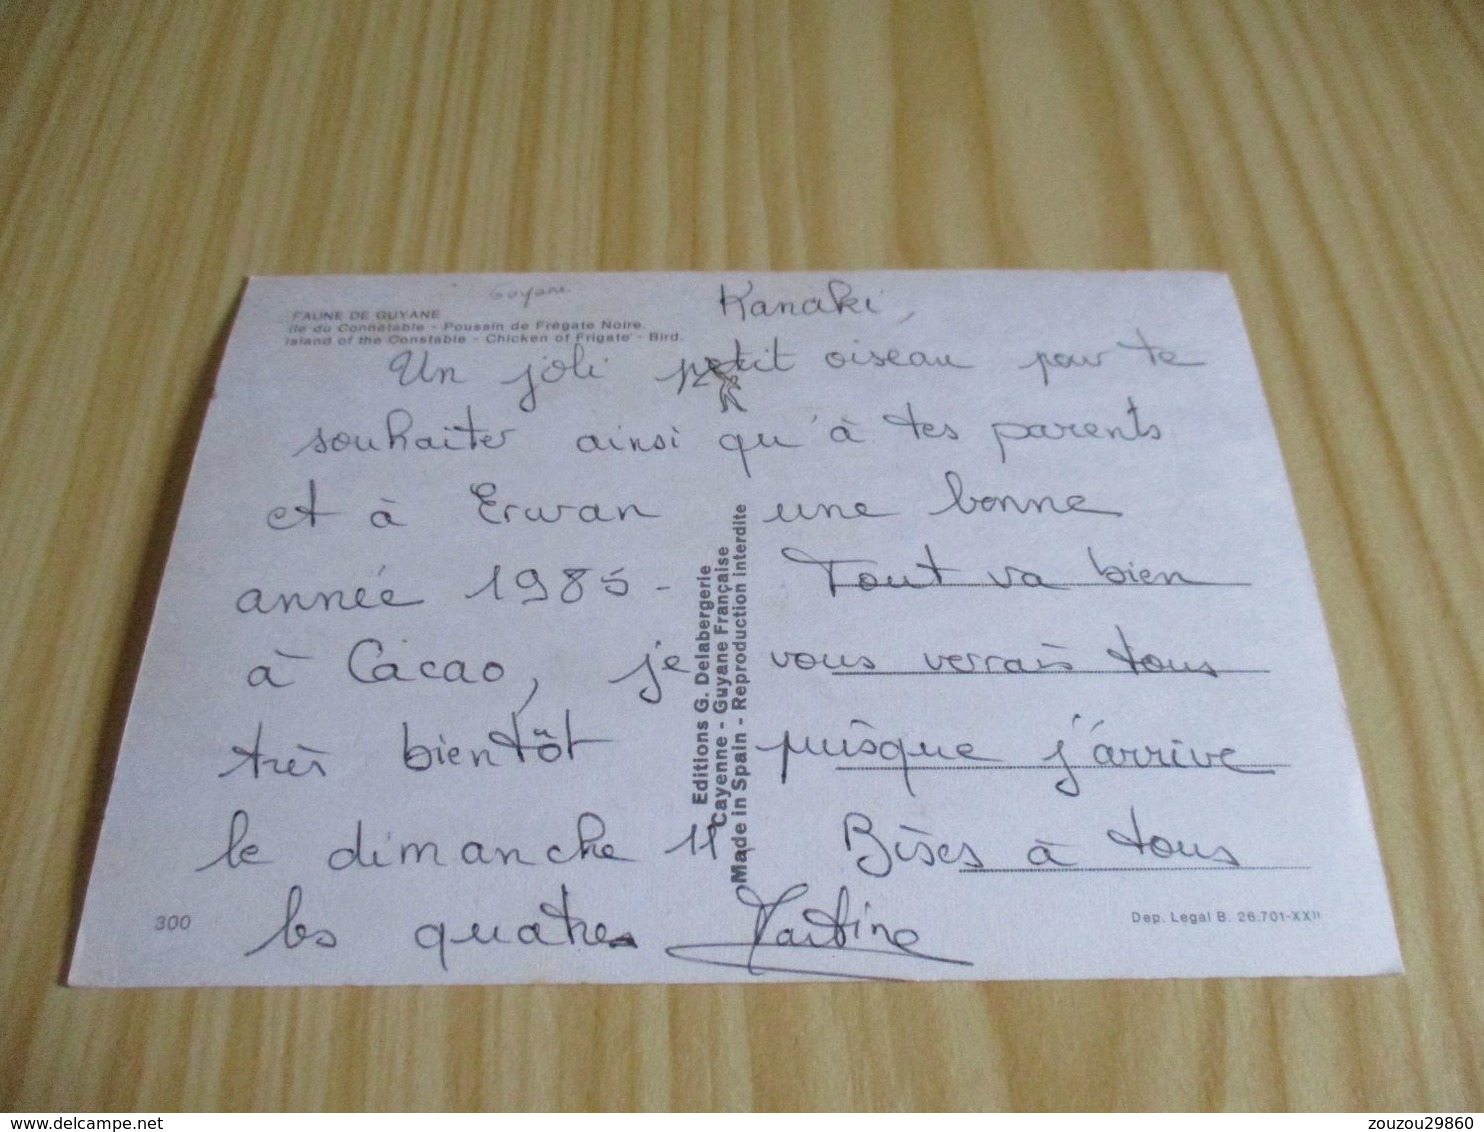 Guyane
FAUNE DE GUYANE
Ile du Connétable - Poussin de Frégate Noire.
Island of the Constable - Chicken of Frigate - Bird.
Kanaki,
Un joli petit oiseau pour te
souhaiter ainsi qu'à tes parents
et à Erwan une bonne
année 1985 - Tout va bien
à Cacao, je vous verrais tous
très bientôt puisque j'arrive
le dimanche 11 Bises à tous
les quatre Martine
Editions G. Delabergerie
Cayenne - Guyane Française
Made in Spain - Reproduction interdite
300
Dep. Legal B. 26.701-XXII
delcampe.net
zouzou29860